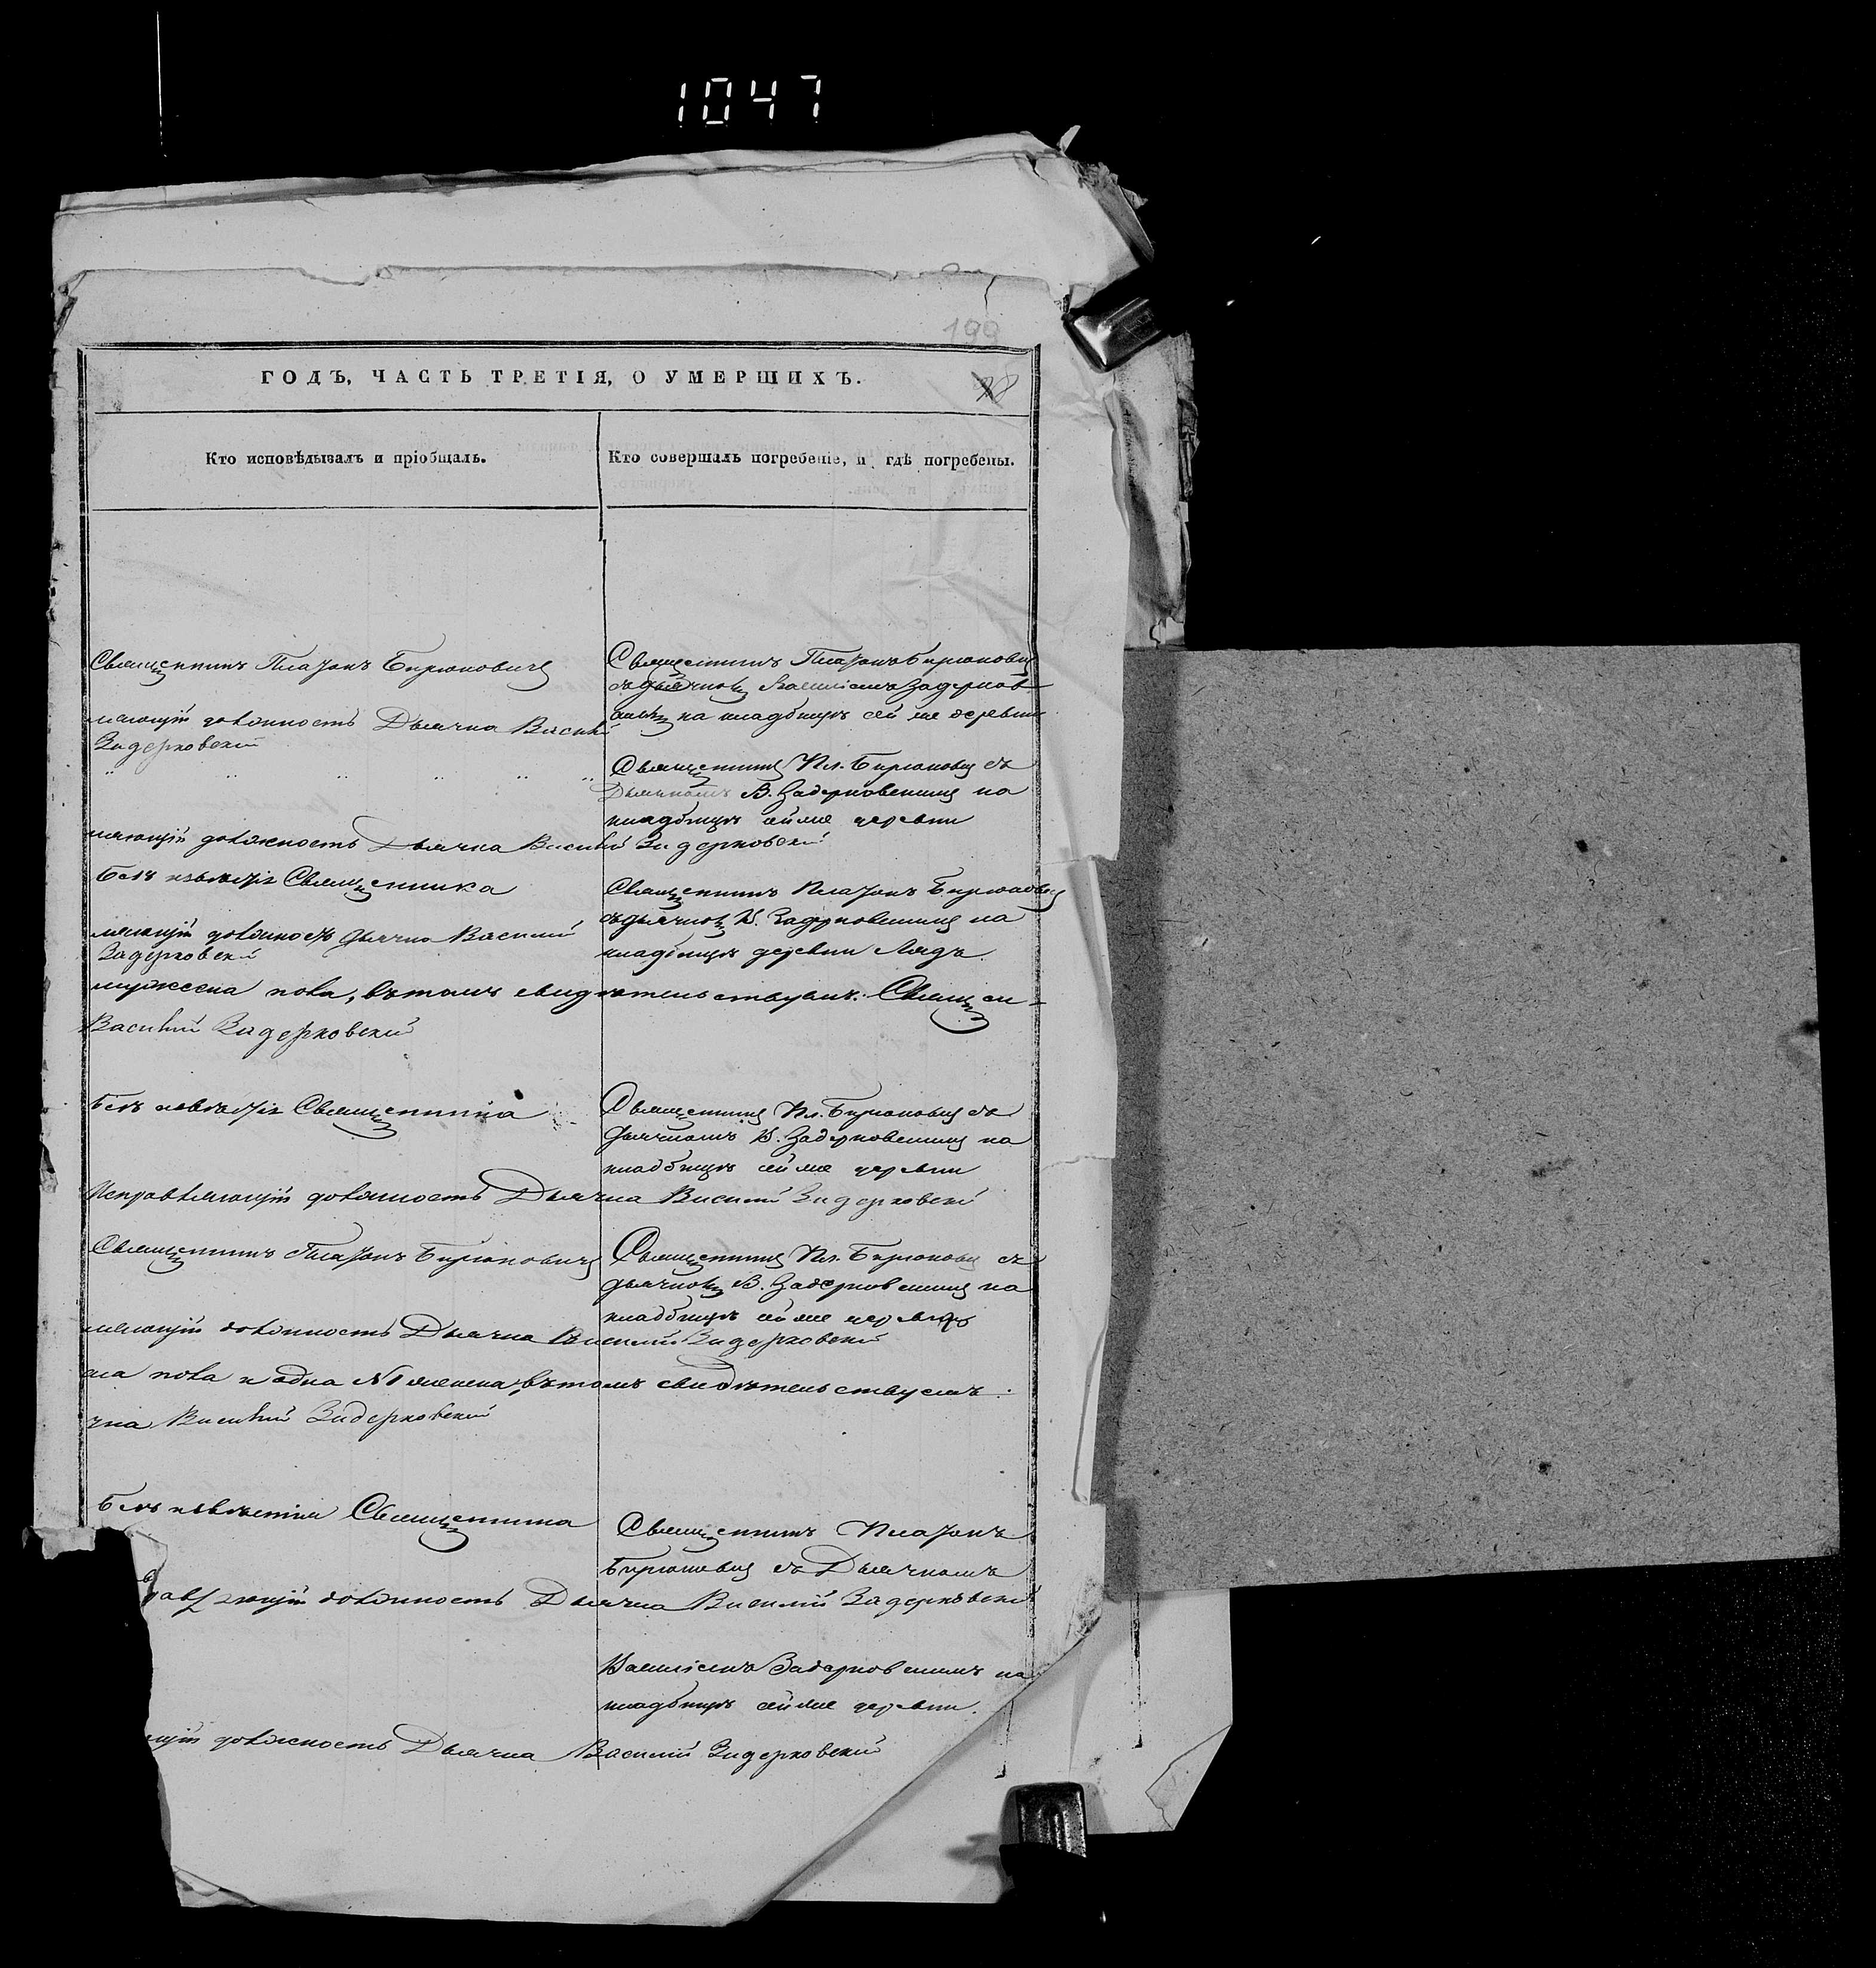 1047
199
ГОДЪ, ЧАСТЬ ТРЕТІЯ, О УМЕРШИХЪ.
28
Кто исповѣдывалъ и пріобщалъ.
Кто совершалъ погребеніе, и гдѣ погребены.
Священникъ Платонъ Бирюковичъ
Священникъ Платонъ Бирюковичъ
съ дьячкомъ Василіемъ Задерков-
скимъ на кладбищѣ сей же деревни
ляющій должность Дьячка Василій
Задерковскій
Священникъ Пл. Бирюковичъ съ
Дьячкомъ В. Задерковскимъ на
кладбищѣ сей же деревни
ляющій должность Дьячка Василій Задерковскій
Безъ извѣстія Священника
Священникъ Платонъ Бирюковичъ
съ дьячкомъ В. Задерковскимъ на
кладбищѣ деревни Лядъ.
ляющій должность Дьячка Василій
Задерковскій
мужеска пола, въ томъ свидѣтельствуемъ: Священ-
Василій Задерковскій
Безъ извѣстія Священника
Священникъ Пл. Бирюковичъ съ
Дьячкомъ В. Задерковскимъ на
кладбищѣ сей же деревни
Исправляющій должность Дьячка Василій Задерковскій
Священникъ Платонъ Бирюковичъ
Священникъ Пл. Бирюковичъ съ
дьячкомъ В. Задерковскимъ на
кладбищѣ сей же деревнѣ
ляющій должность Дьячка Василій Задерковскій
ска пола и одна женска, въ томъ свидѣтельствуемъ:
чка Василій Задерковскій
Безъ извѣстія Священника
Священникъ Платонъ
Бирюковичъ съ Дьячкомъ
равляющій должность Дьячка Василій Задерковскій
Василіемъ Задерковскимъ на
кладбищѣ сей же деревни.
ющій должность Дьячка Василій Задерковскій